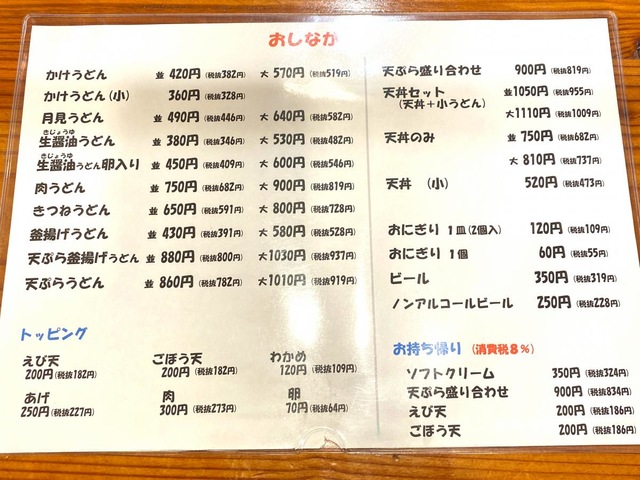 おしながき
かけうどん 並 420円(税抜382円) 大 570円(税抜519円)
かけうどん(小) 360円(税抜328円)
月見うどん 並 490円(税抜446円) 大 640円(税抜582円)
生醤油うどん 並 380円(税抜346円) 大 530円(税抜482円)
きじょうゆ
生醤油うどん卵入り 並 450円(税抜409円) 大 600円(税抜546円)
きじょうゆ
肉うどん 並 750円(税抜682円) 大 900円(税抜819円)
きつねうどん 並 650円(税抜591円) 大 800円(税抜728円)
釜揚げうどん 並 430円(税抜391円) 大 580円(税抜528円)
天ぷら釜揚げうどん 並 880円(税抜800円) 大1030円(税抜937円)
天ぷらうどん 並 860円(税抜782円) 大1010円(税抜919円)
トッピング
えび天 ごぼう天 わかめ
200円(税抜182円) 200円(税抜182円) 120円(税抜109円)
あげ 肉 卵
250円(税抜227円) 300円(税抜273円) 70円(税抜64円)
天ぷら盛り合わせ 900円(税抜819円)
天丼セット 並1050円(税抜955円)
(天丼+小うどん) 大1110円(税抜1009円)
天丼のみ 並 750円(税抜682円)
大 810円(税抜737円)
天丼 (小) 520円(税抜473円)
おにぎり 1皿(2個入) 120円(税抜109円)
おにぎり 1個 60円(税抜55円)
ビール 350円(税抜319円)
ノンアルコールビール 250円(税抜228円)
お持ち帰り (消費税8%)
ソフトクリーム 350円(税抜324円)
天ぷら盛り合わせ 900円(税抜834円)
えび天 200円(税抜186円)
ごぼう天 200円(税抜186円)